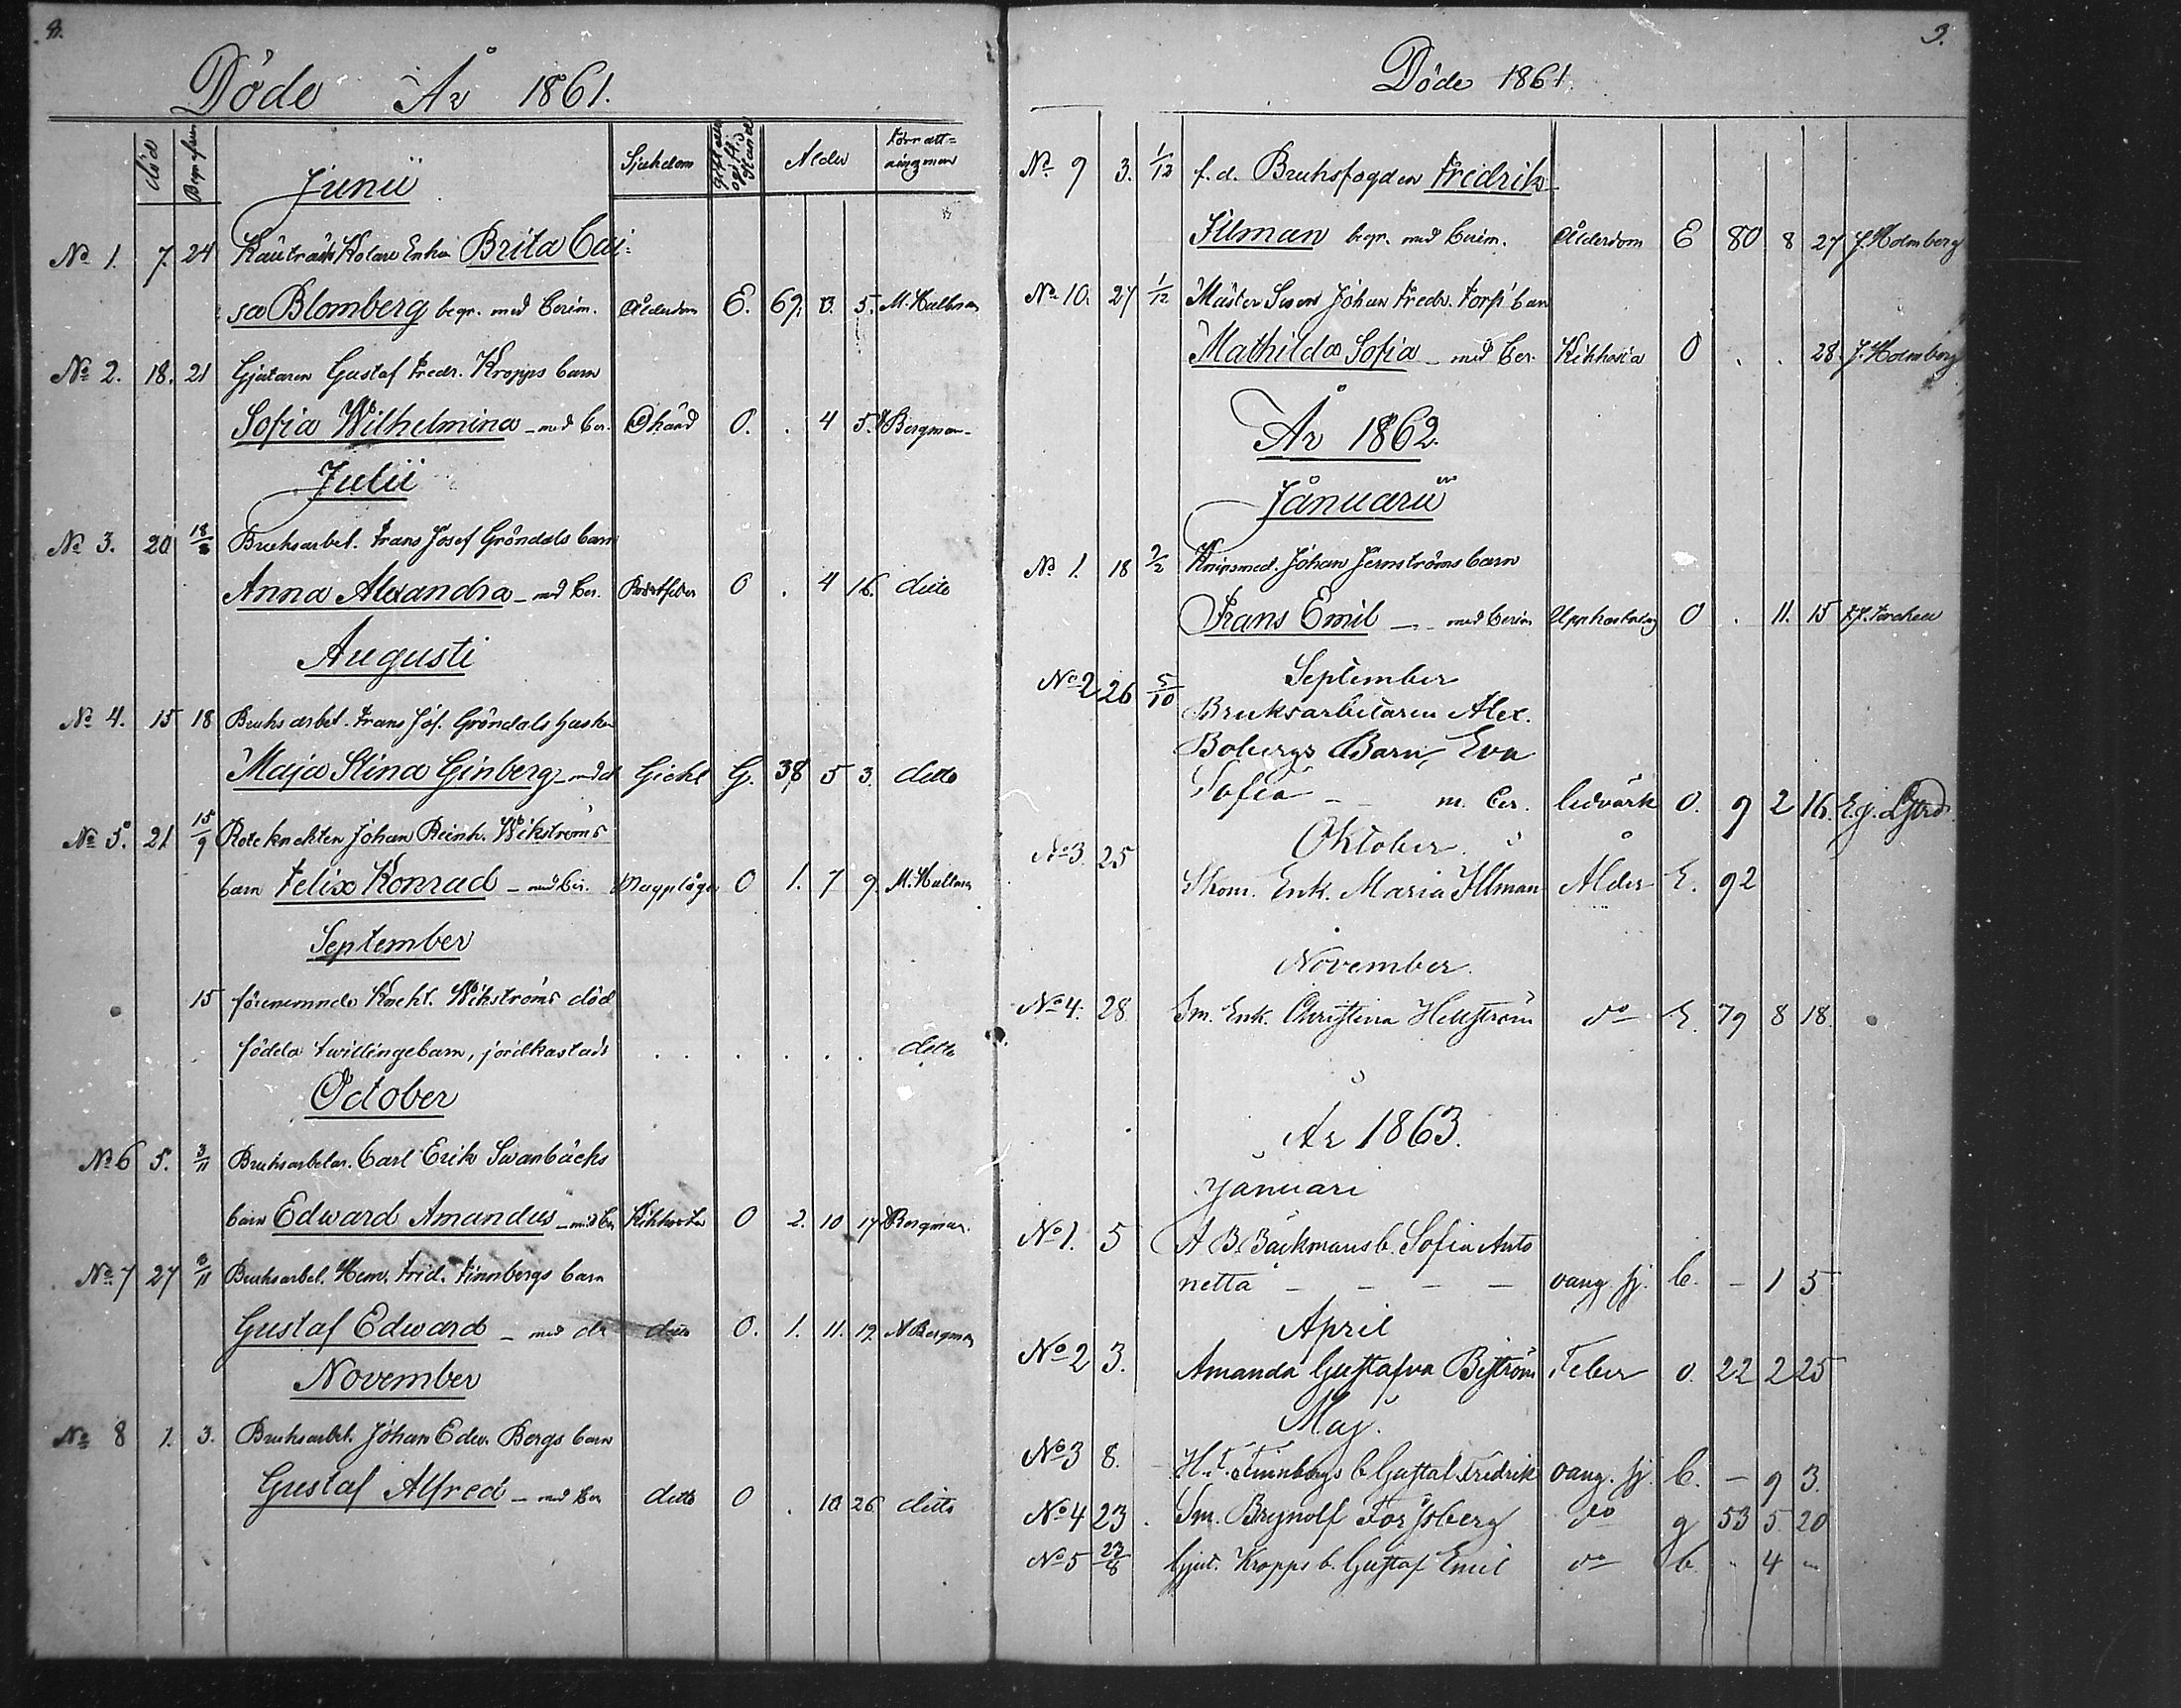 Döde År 1861.
död Begrafven Sjukdom Ålder Förrätt-
ningsman
Junii
No 1. 7. 24 Kolare Enkan Brita Cai-
sa Blomberg begr. med Cerim. Ålderdom E. 69. 0. 5. M. Hallman
No 2. 18. 21 Gjutaren Gustaf Fredr. Kropps barn
Sofia Wilhelmina – med Cer. Okänd O. . 4 5. Bergman
Julii
No 3. 20 18/8 Bruksarbet. Frans Josef Gröndals barn
Anna Alexandra – med Cer. O . 4 16. ditto
Augusti
No 4. 15 18 Bruksarbet. Frans Jos. Gröndals hustru
Maja Stina Ginberg – med Gickt G. 38 5 3. ditto
No 5. 21 15/9 Roteknekten Johan Reinh. Wikströms
barn Felix Konrad – med Cer. O 1. 7 9. M. Hallman
September
15 förenemnde Knekt. Wikströms död
födda twillingebarn, jordkastade . . . . . . ditto
October
No 6 5. 3/11 Bruksarbetar. Carl Erik Swanbäcks
barn Edward Amandus – med Cer Kikhosta O 2. 10 17 Bergman
No 7 27 3/11 Bruksarbet. Hem. Frid. Finnbergs barn
Gustaf Edward – med do ditto O. 1. 11. 12. A Bergman
November
No 8 1. 3. Bruksarbet. Johan Edw. Bergs barn
Gustaf Alfred – med Cer ditto O . 10 26 ditto
9.
Döde 1861.
No 9 3. 1/12 f.d. Bruksfogden Fredrik
Illman begr. med Cerim. Ålderdom E 80 8 27 J. Holmberg
No 10. 27 1/12 Mäster Johan Fredr. Torps barn
Mathilda Sofia – med Cer. Kikhosta O . . 28. J. Holmberg
År 1862.
Januarii
No 1. 18 2/2 Knipsmed. Johan Jernströms barn
Frans Emil – – med Cerim O . 11. 15
September
No 2 26 5/10 Bruksarbetaren Alex.
Bobergs Barn, Eva
Sofia – – m. Cer. Ledvärk O. 9 2 16.
Oktober
No 3. 25
Skom. Enk. Maria Illman Ålder E. 92
November
No 4. 28. Sm. Enk. Christina Hellström do E. 79 8 18.
År 1863.
Januari
No 1. 5 A B. Bäckmans b. Sofia Anto
netta – – – – vang. sj. b. – 1 5
April
No 2 3. Amanda Gustafva Biström Feber O. 22 2 25
Maj.
No 3 8. H. F. Finnbergs b. Gustaf Fredrik vang. sj. b. – 9 3.
No 4 23. Sm. Brynolf Forssberg do g 53 5. 20
No 5 23/8 Gjut. Kropps b. Gustaf Emil do b. " 4 "